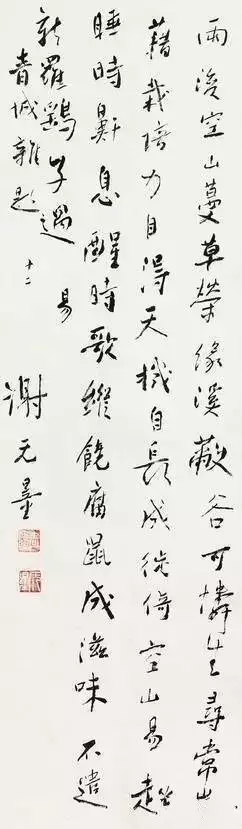 雨後空山蔓草榮緣溪蔽谷可憐生尋常
藉栽培力自得天機自長成徙倚空山易趖
睡時鼾息醒時歌縱饒腐鼠成滋味不遣
新羅鷂子過 易
青城雜題 十二
謝无量